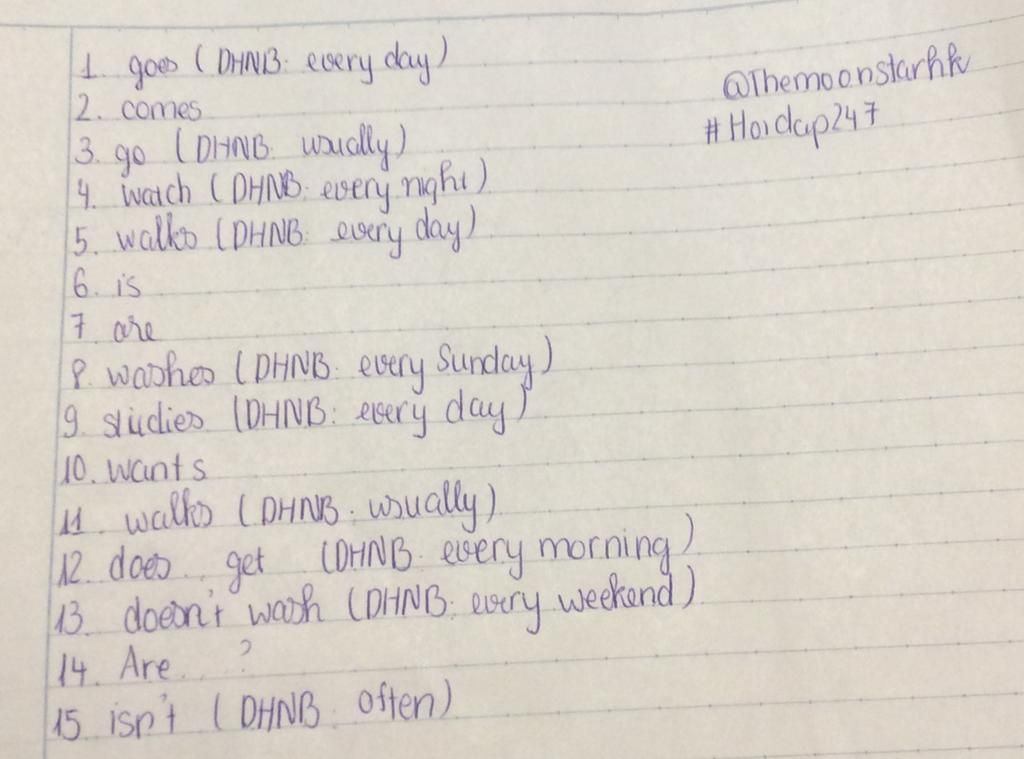 1. goes (DHNB: every day)
@Themoonstarhk
2. comes
#Hoidap247
3. go (DHNB: usually)
4. watch (DHNB: every night)
5. walks (DHNB: every day)
6. is
7. are
8. washes (DHNB: every Sunday)
9. studies (DHNB: every day)
10. wants
11. walks (DHNB: usually)
12. does... get (DHNB: every morning)
13. doesn't wash (DHNB: every weekend)
14. Are...?
15. isn't (DHNB: often)